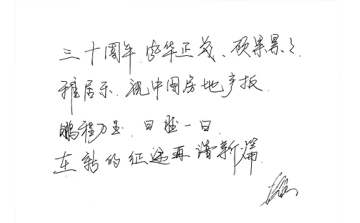 三十周年，岁华正茂、硕果累々
雅居乐、祝中国房地产报
鹏程万里、日胜一日
在新的征途再谱新篇